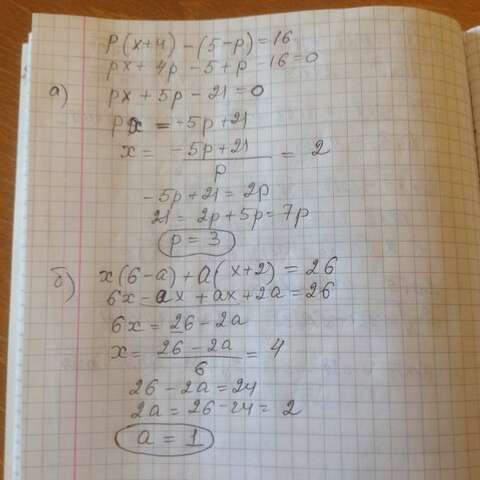 p(x+4) - (5-p) = 16
px + 4p - 5 + p - 16 = 0
а) px + 5p - 21 = 0
px = -5p + 21
x = (-5p + 21)/p = 2
-5p + 21 = 2p
21 = 2p + 5p = 7p
p = 3
б) x(6-a) + a(x+2) = 26
6x - ax + ax + 2a = 26
6x = 26 - 2a
x = (26 - 2a)/6 = 4
26 - 2a = 24
2a = 26 - 24 = 2
a = 1